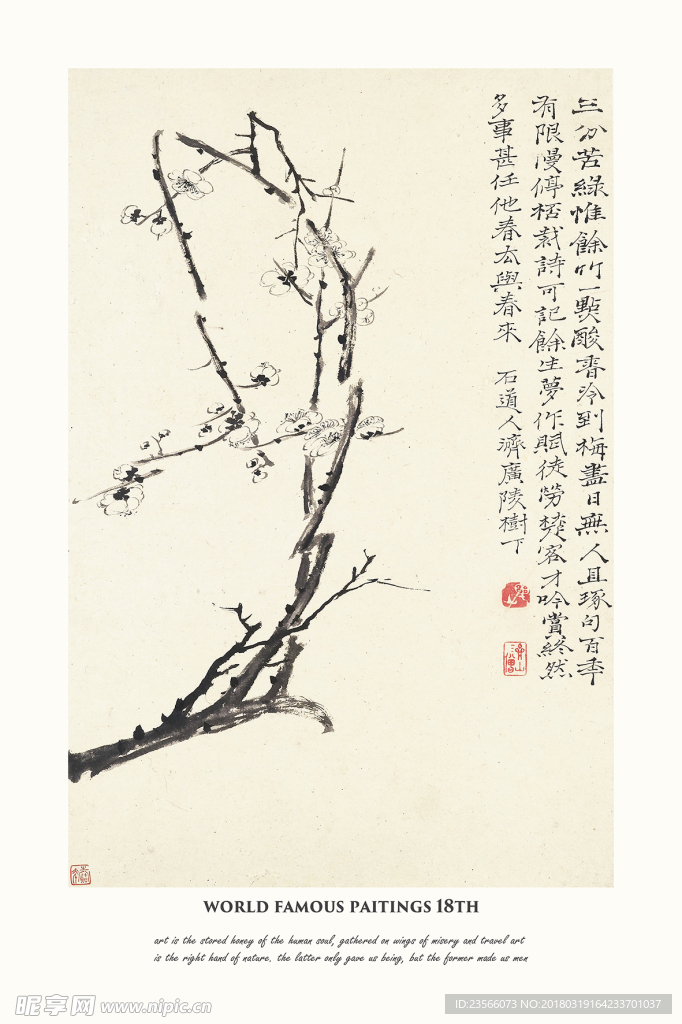 三分苦綠惟餘竹一點酸香冷到梅盡日無人且琢句百年
有限漫停桮裁詩可記餘生夢作賦徒勞楚客才吟賞終然
多事甚任他春去與春來 石道人濟廣陵樹下
WORLD FAMOUS PAITINGS 18TH
art is the stored honey of the human soul, gathered on wings of misery and travel art
is the right hand of nature. the latter only gave us being, but the former made us men
昵享网 www.nipic.cn
ID:23566073 NO:20180319164233701037